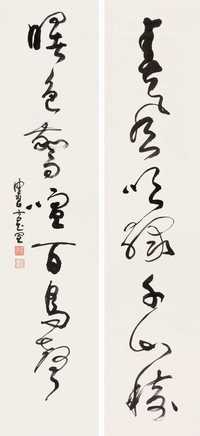 春風吹綠千山樹
曙色驚喧百鳥聲